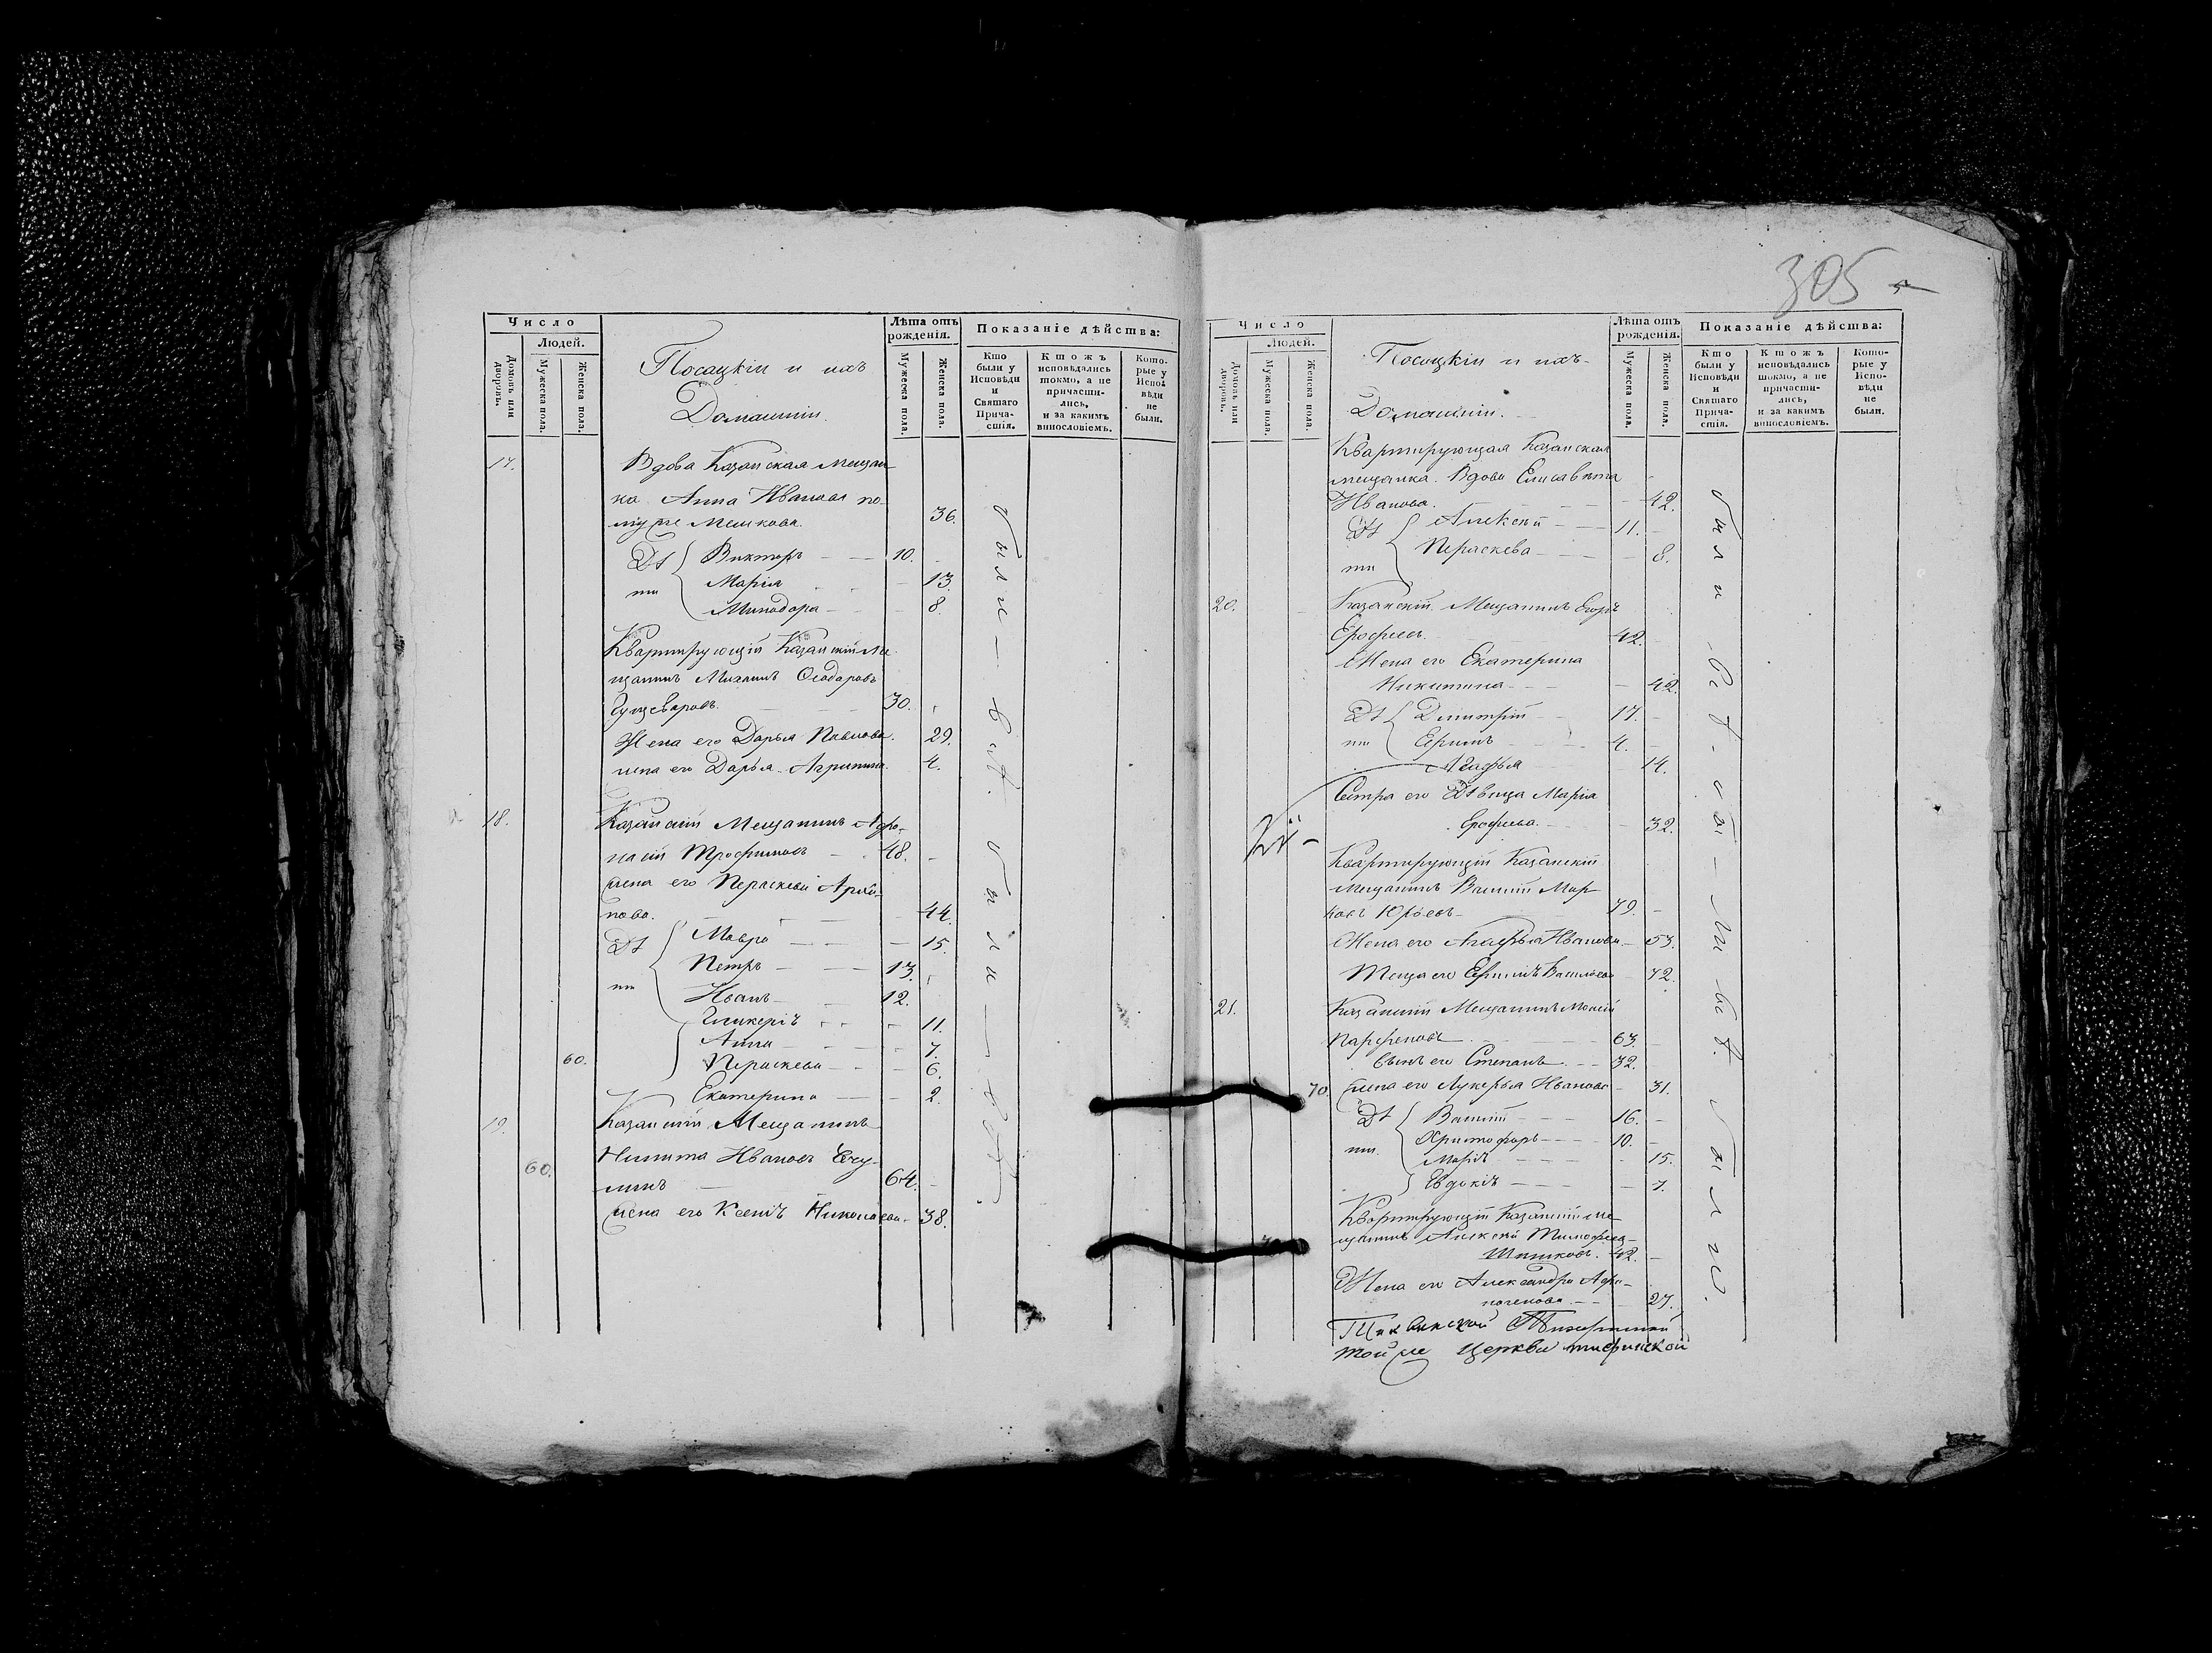 Число
Людей.
Домовъ или дворовъ.
Мужеска пола.
Женска пола.
Посацкіи и ихъ
Домашніи.
Лѣта отъ рожденія.
Мужеска пола.
Женска пола.
Показаніе дѣйства:
Кто были у Исповѣди и Святаго Прича-стія.
Ктожъ исповѣдались токмо, а не причасти-лись, и за какимъ винословіемъ.
Кото-рые у Испо-вѣди не были.
17. Вдова Казанская мещан
ка Анна Иванова по
мужѣ Мешкова. 36.
Дѣти Викторъ 10.
Марія 13.
Минодора 8.
Квартирующій Казанскій ме
щанинъ Михаилъ Ѳеодоровъ
30.
Жена его Дарья Павлова. 29.
Дарья Агрипина. 4.
18. Казанскій Мещанинъ Афо-
насій Трофимовъ 48.
жена его Пераскева Архи-
пова. 44.
Дѣти Мавра 15.
Петръ 13.
Иванъ 12.
Гликерія 11.
Анна 7.
60. Пераскева 6.
Екатерина 2.
19. Казанскій Мещанинъ
Никита Ивановъ
60. 64.
жена его Ксенія Николаева 38.
были всѣ. были всѣ
305
Число
Людей.
Домовъ или дворовъ.
Мужеска пола.
Женска пола.
Посацкіи и ихъ
Домашніи.
Лѣта отъ рожденія.
Мужеска пола.
Женска пола.
Показаніе дѣйства:
Кто были у Исповѣди и Святаго Прича-стія.
Ктожъ исповѣдались токмо, а не причасти-лись, и за какимъ винословіемъ.
Кото-рые у Испо-вѣди не были.
Квартирующая Казанская
мещанка Вдова Елисавѣта
Иванова. 42.
Дѣти Алексѣй 11.
Пераскева 8.
20. Казанскій Мещанинъ Егоръ
Ерофеевъ. 42.
Жена его Екатерина
Никитина 42.
Дѣти Димитрій 17.
Ефимъ 4.
Агафья 14.
Сестра его Дѣвица Марія
Ерофеева. 32.
Квартирующій Казанскій
мещанинъ Василій Мар-
ковъ Юрьевъ 79.
Жена его Агафья Иванова 53.
Теща его Васильева 72.
21. Казанскій Мещанинъ Моисей
Парфеновъ 63.
Сынъ его Степанъ 32.
70. жена его Лукерья Иванова 31.
Дѣти Василій 16.
Христофоръ 10.
Марія 15.
Евдокія 7.
Квартирующій Казанскій ме
щанинъ Алексѣй Тимофеев
Шишковъ. 42.
Жена его Александра Афо-
насьева 27.
той же Церкви
были